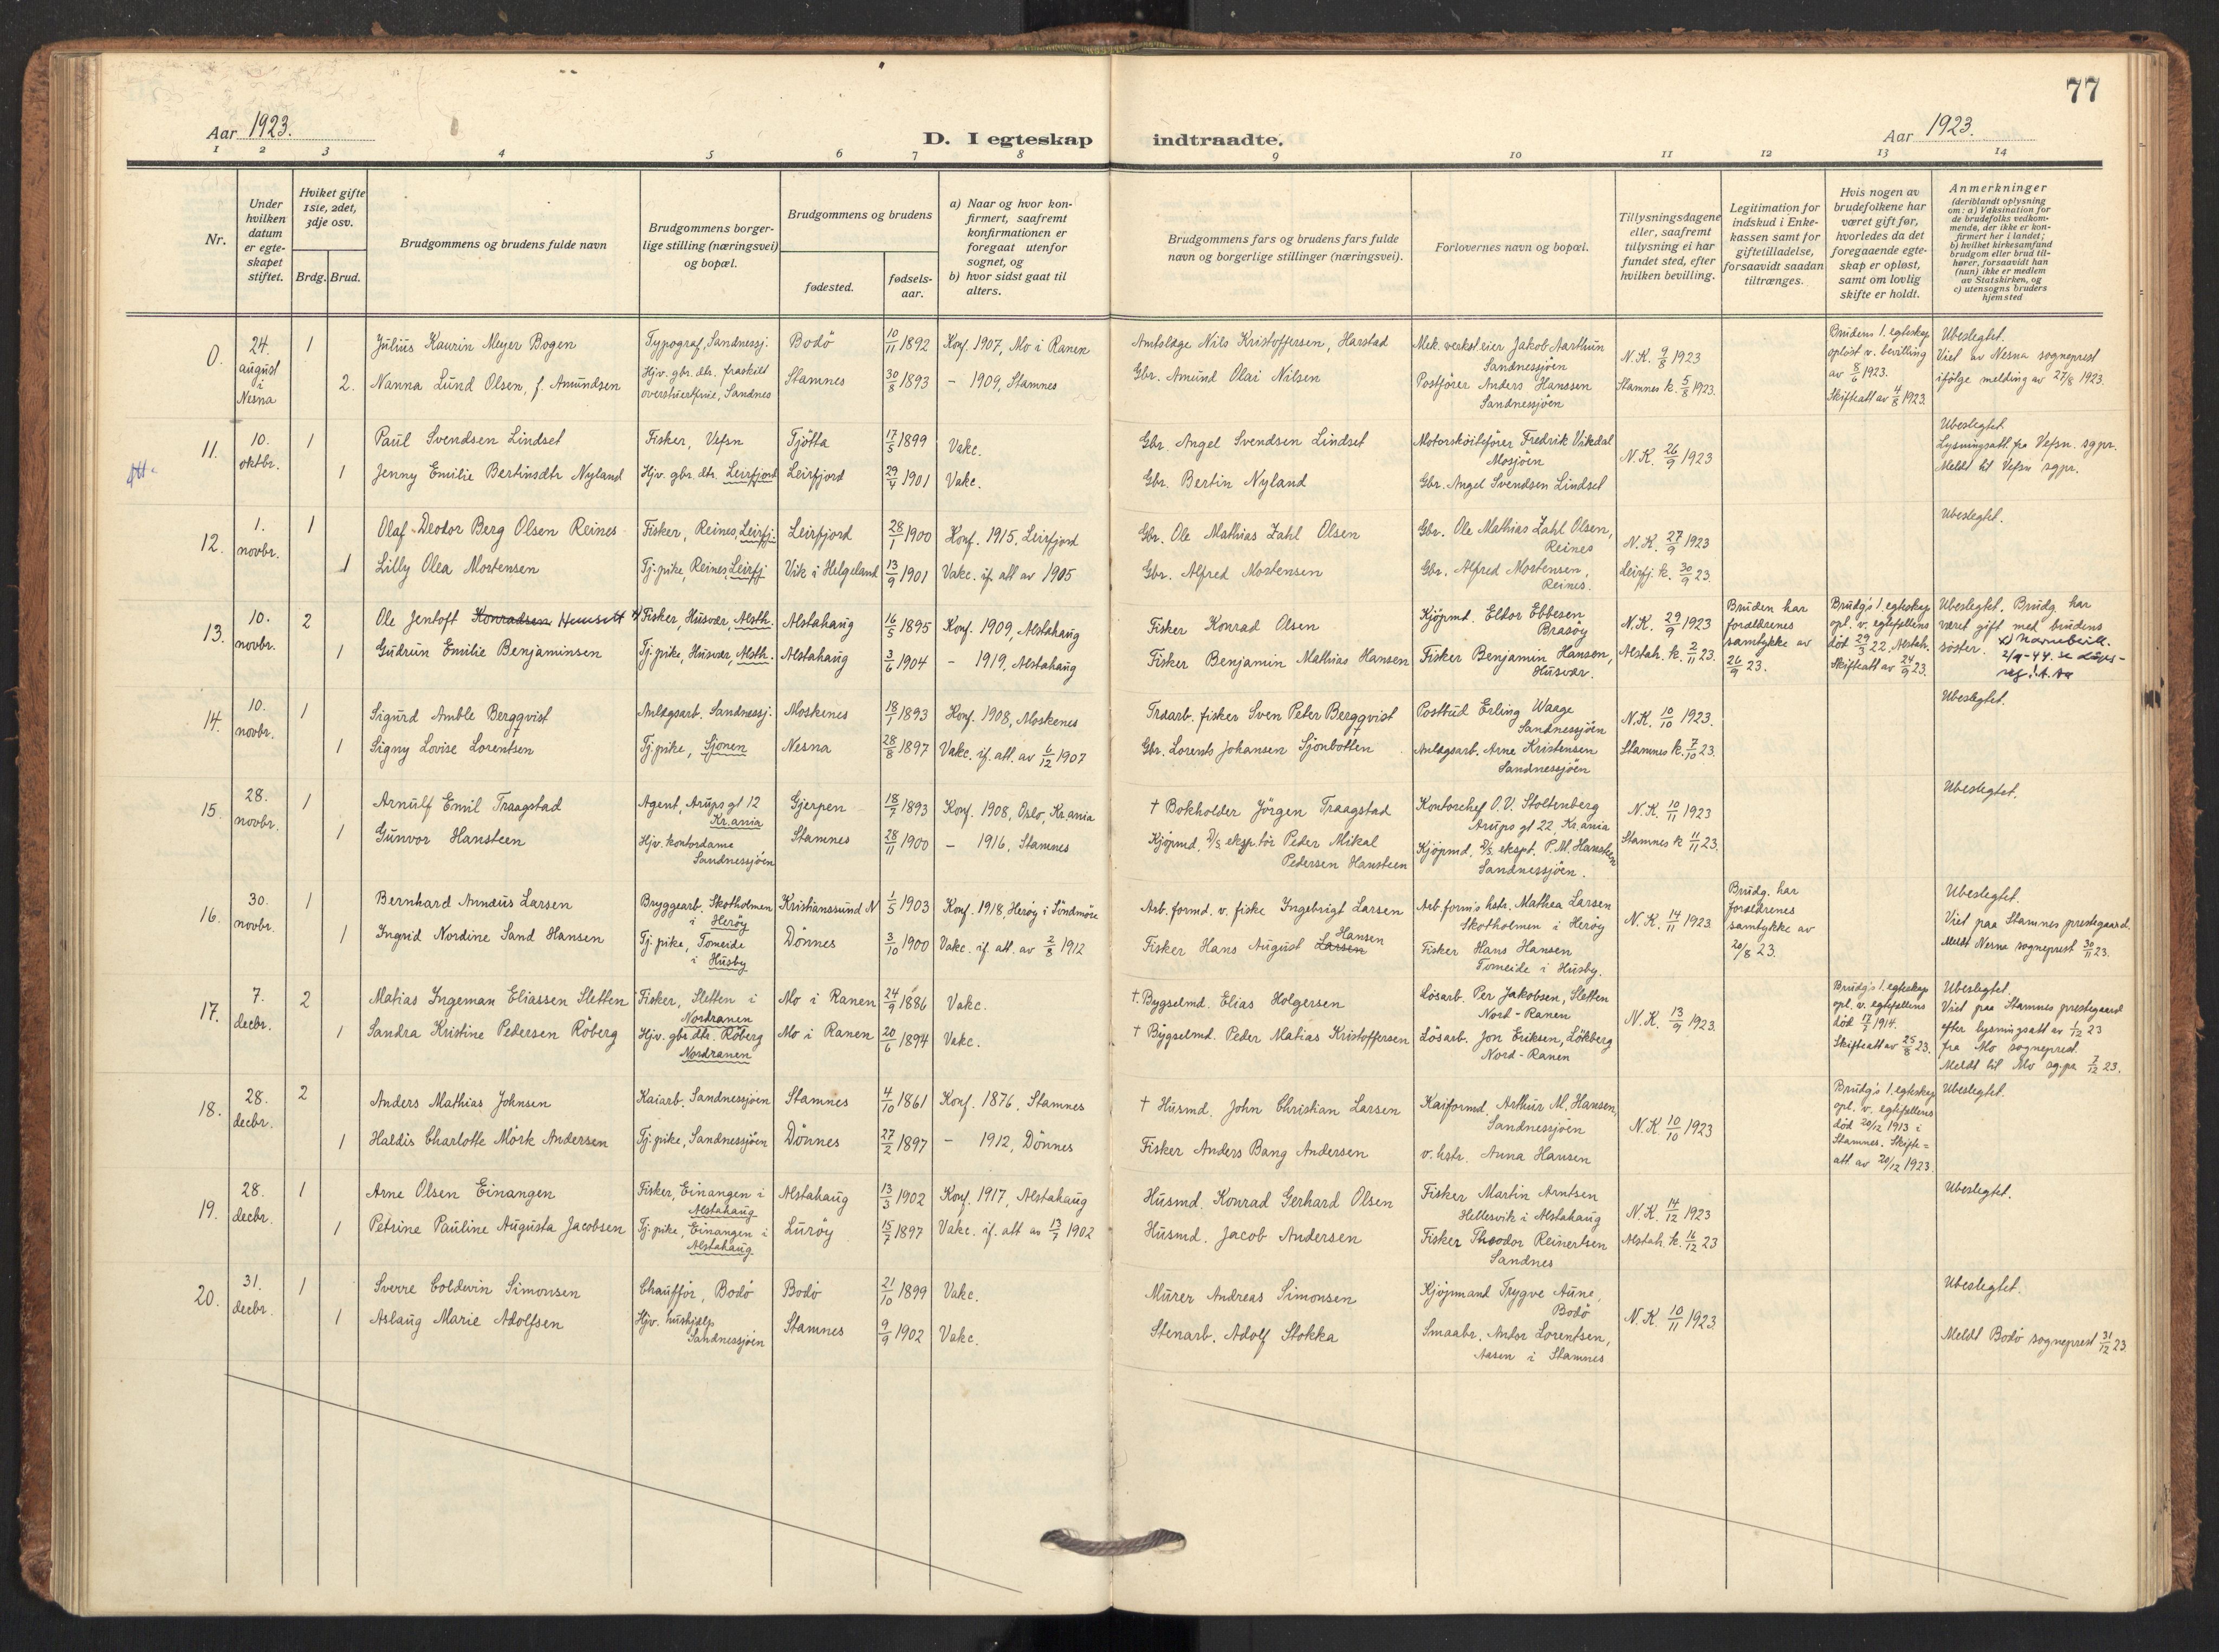 77
Aar 1923.
D. I egteskap indtraadte.
Aar 1923.
1 2 3 4 5 6 7 8 9 10 11 12 13 14
Nr.
Under hvilken datum er egteskapet stiftet.
Hviket gifte 1ste, 2det, 3dje osv.
Brdg. Brud.
Brudgommens og brudens fulde navn
Brudgommens borgerlige stilling (næringsvei) og bopæl.
Brudgommens og brudens
fødested.
fødselsaar.
a) Naar og hvor konfirmert, saafremt konfirmationen er foregaat utenfor sognet, og
b) hvor sidst gaat til alters.
Brudgommens fars og brudens fars fulde navn og borgerlige stillinger (næringsvei).
Forlovernes navn og bopæl.
Tillysningsdagene eller, saafremt tillysning ei har fundet sted, efter hvilken bevilling.
Legitimation for indskud i Enkekassen samt for giftetilladelse, forsaavidt saadan tiltrænges.
Hvis nogen av brudefolkene har været gift før, hvorledes da det foregaaende egteskap er opløst, samt om lovlig skifte er holdt.
Anmerkninger (deriblandt oplysning om: a) Vaksination for de brudefolks vedkommende, der ikke er konfirmert her i landet; b) hvilket kirkesamfund brudgom eller brud tilhører, forsaavidt han (hun) ikke er medlem av Statskirken, og c) utensogns bruders hjemsted
0. 24. august i Nesna
1 Julius Kaurin Meyer Bogen Typograf, Sandnessj. Bodö 10/11 1892 Konf. 1907, Mo i Ranen
Nils Kristoffersen, Harstad Mek. verksteier Jakob Aarthun Sandnessjöen N.K. 9/8 1923
2. Nanna Lund Olsen, f. Amundsen Hjv. gbr. dtr. fraskilt Sandnes Stamnes 30/8 1893 - 1909, Stamnes
Gbr. Amund Olai Nilsen Postförer Anders Hanssen Sandnessjöen Stamnes k. 5/8 1923.
Brudens 1. egteskap oplöst v. bevilling av 8/6 1923. Skifteatt av 4/8 1923.
Ubeslegtet. Viet av Nesna sogneprest ifölge melding av 27/8 1923.
11. 10. oktbr.
1 Paul Svendsen Lindset Fisker, Vefsn Tjötta 17/5 1899 Vakc.
Gbr. Angel Svendsen Lindset Motorsköiteförer Fredrik Vikdal Mosjöen N.K. 26/9 1923
1 Jenny Emilie Bertinsdtr Nyland Hjv. gbr. dtr. Leirfjord Leirfjord 29/4 1901 Vakc.
Gbr. Bertin Nyland Gbr. Angel Svendsen Lindset
Ubeslegtet. Lysningsatt. fra Vefsn. sgpr. Meldt til Vefsn sgpr.
12. 1. novbr.
1 Olaf Deodor Berg Olsen Reines Fisker, Reines, Leirfj. Leirfjord 28/1 1900 Konf. 1915, Leirfjord
Gbr. Ole Mathias Zahl Olsen Gbr. Ole Mathias Zahl Olsen, Reines N.K. 27/9 1923
1 Lilly Olea Mortensen Tj. pike, Reines, Leirfj Vik i Helgeland 13/9 1901 Vakc. if. att av 1905
Gbr. Alfred Mortensen Gbr. Alfred Mortensen, Reines. Leirfj. k. 30/9 23.
Ubeslegtet.
13. 10. novbr.
2 Ole Jentoft Konradsen Fisker, Husvær, Alsth. Alstahaug 16/5 1895 Konf. 1909, Alstahaug
Fisker Konrad Olsen Kjöpmt. Eldor Ebbesen Brasöy N.K. 29/9 1923
1 Gudrun Emilie Benjaminsen Tj. pike, Husvær, Alsth. Alstahaug 3/6 1904 - 1919, Alstahaug
Fisker Benjamin Mathias Hansen Fisker Benjamin Hansen, Husvær. Alstah. k. 2/11 23.
Bruden har forældrenes samtykke av 26/9 23.
Brudg's 1. egteskap opl. v. egtefellens död 29/3 22, Alstah. Skifteatt av 24/9 23.
Ubeslegtet. Brudg. har været gift med brudens söster. x) Navnebevill. 2/9-44.
14. 10. novbr.
1 Sigurd Amble Bergqvist Anlægsarb. Sandnessj. Moskenes 18/1 1893 Konf. 1908, Moskenes
fisker Sven Peter Bergqvist Postbud Erling Waage Sandnessjöen N.K. 10/10 1923.
1 Signy Lovise Lorentsen Tj. pike, Sjonen Nesna 28/8 1897 Vakc. if. att. av 6/12 1907
Gbr. Lorents Johansen Sjonbotten Anlægsarb. Arne Kristensen Sandnessjöen Stamnes k. 7/10 23.
Ubeslegtet.
15. 28. novbr.
1 Arnulf Emil Traagstad Agent, Arups gt 12 Kr.ania Gjerpen 18/7 1893 Konf. 1908, Oslo, Kr.ania
† Bokholder Jörgen Traagstad Kontorchef O.V. Stoltenberg Arups gt 22, Kr.ania N.K. 10/11 1923
1 Gunvor Hansteen Hjv. kontordame Sandnessjöen Stamnes 28/11 1900 - 1916, Stamnes
Kjöpmd. D/S eksp.tör Peder Mikal Pedersen Hansteen Kjöpmd. D/S ekspt. P.M. Hansteen Sandnessjöen. Stamnes k 11/11 23.
Ubeslegtet.
16. 30. novbr.
1 Bernhard Annæus Larsen Bryggearb. Skotholmen i Heröy Kristianssund N 1/5 1903 Konf. 1918, Heröy i Söndmöre
Arb. formd. v. fiske Ingebrigt Larsen Arb. form's hstr. Mathea Larsen Skotholmen i Heröy N.K. 14/11 1923
1 Ingrid Nordine Sand Hansen Tj. pike, Tomeide i Husby Dönnes 3/10 1900 Vakc. if. att. av 2/8 1912
Fisker Hans August Larsen Hansen Fisker Hans Hansen Tomeide i Husby.
Brudg. har forældrenes samtykke av 20/8 23.
Ubeslegtet. Viet paa Stamnes prestegaard. Meldt Nesna sogneprest 30/11 23.
17. 7. decbr.
2 Matias Ingeman Eliassen Sletten Fisker, Sletten i Nordranen Mo i Ranen 24/9 1886 Vakc.
†. Bygselmd. Elias Holgersen Lösarb. Per Jakobsen, Sletten Nord-Ranen N.K. 13/9 1923.
1 Sandra Kristine Pedersen Röberg Hjv. gbr dtr. Röberg Nordranen Mo i Ranen 20/6 1894 Vakc.
† Bygselmd. Peder Matias Kristoffersen Lösarb. Jon Eriksen, Lökberg Nord-Ranen
Brudg's 1. egteskap opl. v. egtefellens död 17/5 1914. Skifteatt av 25/8 23.
Ubeslegtet. Viet paa Stamnes prestegaard efter lysningsatt av 1/12 23 fra Mo sogneprest. Meldt til Mo sg.pr 7/12 23.
18. 28. decbr.
2 Anders Mathias Johnsen Kaiarb. Sandnessjöen Stamnes 4/10 1861 Konf. 1876, Stamnes
† Husmd. John Christian Larsen Kaiformd. Arthur M. Hansen, Sandnessjöen N.K. 10/10 1923
1 Haldis Charlotte Mörk Andersen Tj. pike, Sandnessjöen Dönnes 27/2 1897 - 1912, Dönnes
Fisker Anders Bang Andersen v. hstr. Anna Hansen
Brudg's 1. egteskap opl. v. egtefellens död 20/12 1913 i Stamnes. Skifteatt. av 20/12 1923.
Ubeslegtet.
19. 28. decbr.
1 Arne Olsen Einangen Fisker, Einangen i Alstahaug Alstahaug 13/3 1902 Konf. 1917, Alstahaug
Husmd. Konrad Gerhard Olsen Fisker Martin Arntsen Hellesvik i Alstahaug N.K. 14/12 1923
1 Petrine Pauline Augusta Jacobsen Tj. pike, Einangen i Alstahaug Luröy 15/7 1897 Vakc. if. att av 13/7 1902
Husmd. Jacob Andersen Fisker Theodor Reinertsen Sandnes Alstah. k. 16/12 23
Ubeslegtet.
20. 31. decbr.
1 Sverre Coldevin Simonsen Chaufför, Bodö Bodö 21/10 1899 Vakc.
Murer Andreas Simonsen Kjöpmand Trygve Aune, Bodö N.K. 10/11 1923.
1 Aslaug Marie Adolfsen Hjv. hushjælp Sandnessjöen Stamnes 9/9 1902 Vakc.
Stenarb. Adolf Stokka Smaabr. Antor Lorentsen, Aasen i Stamnes
Ubeslegtet. Meldt Bodö sogneprest 31/12 23.